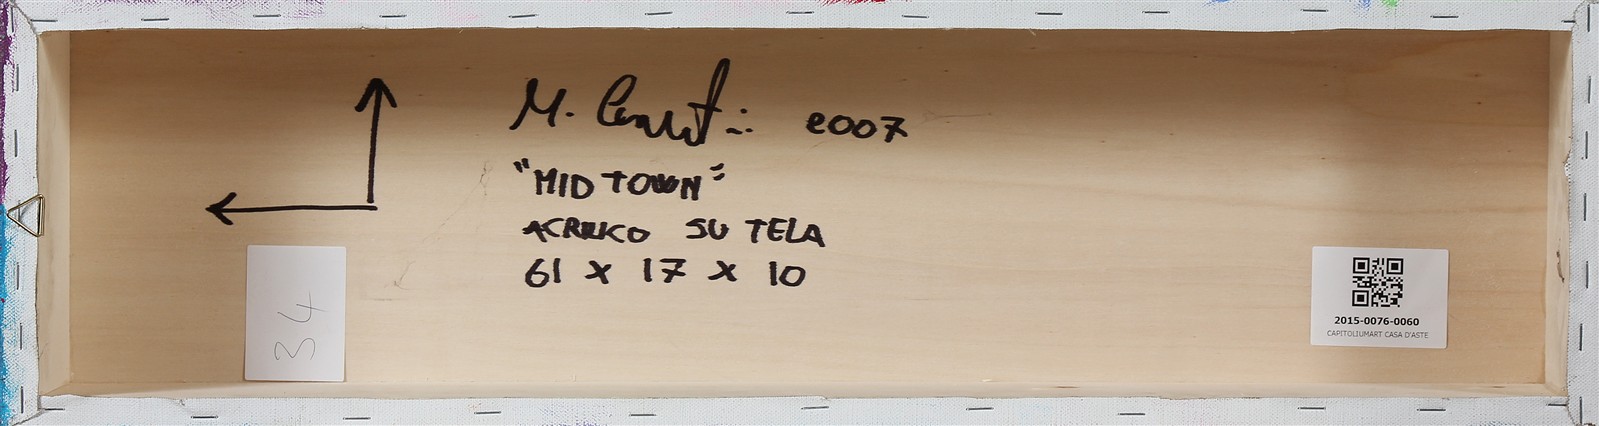 2007
"MIDTOWN"
ACRILICO SU TELA
61 x 17 x 10
34
2015-0076-0060
CAPITOLIUMART CASA D'ASTE